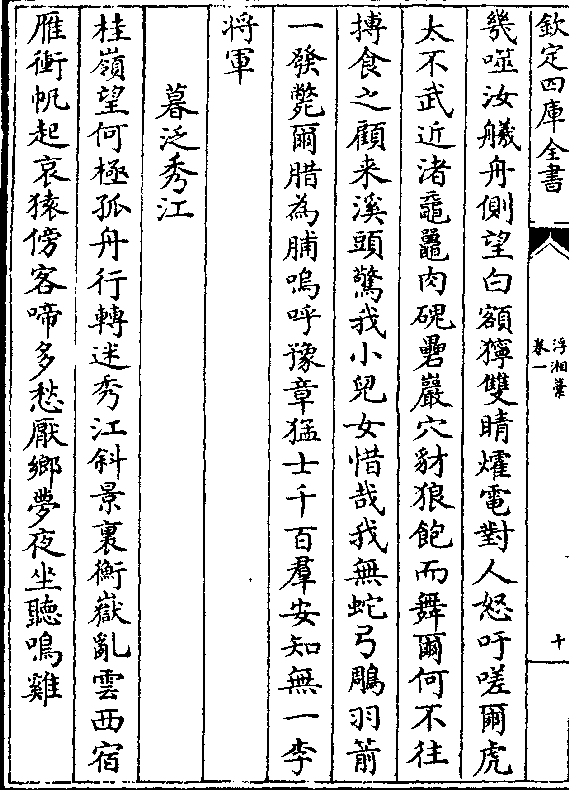 欽定四庫全書
浮湘藁
卷一
十
幾噬汝艤舟側望白額獰雙睛爗電對人怒吁嗟爾虎
太不武近渚黿鼉肉磈礨巖穴豺狼飽而舞爾何不往
搏食之顧来溪頭驚我小兒女惜哉我無蛇弓鵰羽箭
一發斃爾腊為脯嗚呼豫章猛士千百羣安知無一李
将軍
暮泛秀江
桂嶺望何極孤舟行轉迷秀江斜景裏衡嶽亂雲西宿
雁衝帆起哀猿傍客啼多愁厭鄉夢夜坐聽鳴雞